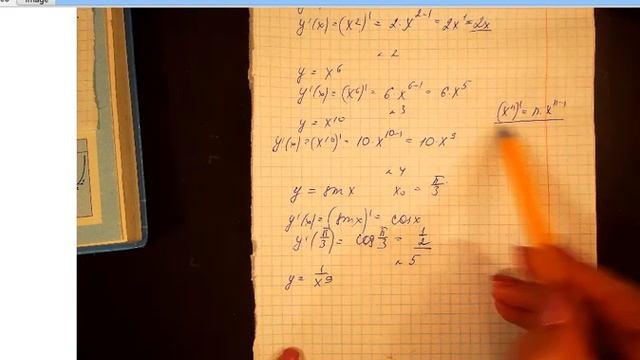 Image
y'(x) = (x²)' = 2·x²⁻¹ = 2x¹ = 2x
~2
y = x⁶
y'(x) = (x⁶)' = 6·x⁶⁻¹ = 6·x⁵
~3
y = x¹⁰
(xⁿ)' = n·xⁿ⁻¹
y'(x) = (x¹⁰)' = 10·x¹⁰⁻¹ = 10·x⁹
~4
y = sin x x₀ = π/3
y'(x) = (sin x)' = cos x
y'(π/3) = cos π/3 = 1/2
~5
y = 1/x⁹